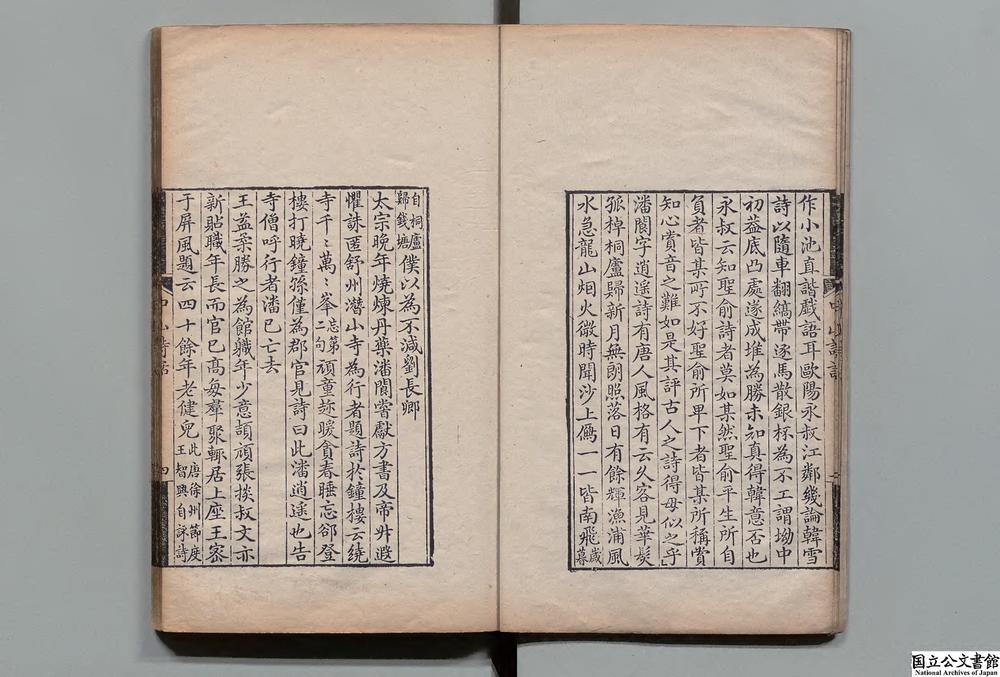 作小池直諧戯語耳歐陽永叔江鄰幾論韓雪
詩以隨車翻縞帶逐馬散銀杯為不工謂坳中
初葢底凸處遂成堆為勝未知真得韓意否也
永叔云知聖俞詩者莫如某然聖俞平生所自
負者皆某所不好聖俞所卑下者皆某所稱賞
知心賞音之難如是其評古人之詩得毋似之乎
潘閬字逍遥詩有唐人風格有云久客見華髮
孤棹桐廬歸新月無朗照落日有餘輝漁浦風
水急龍山烟火微時聞沙上鴈一一皆南飛歲暮
自桐廬歸錢塘僕以為不減劉長卿
太宗晚年燒煉丹藥潘閬嘗獻方書及帝升遐
懼誅匿舒州潛山寺為行者題詩於鐘樓云繞
寺千〻萬〻峯忘第二句頑童趂暖貪春睡忘郤登
樓打曉鐘孫僅為郡官見詩曰此潘逍遥也告
寺僧呼行者潘已亡去
王益柔勝之為館職年少意頡頏張掞叔文亦
新貼職年長而官已高每羣聚輒居上座王宻
于屏風題云四十餘年老健兒此唐徐州節度王智興自詠詩
中山詩話
四
国立公文書館
National Archives of Japan